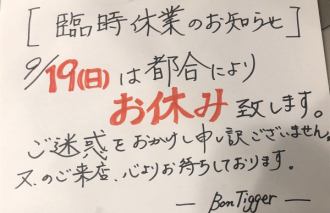 [臨時休業のお知らせ]
9/19(日)は都合により
お休み致します。
ご迷惑をおかけし申し訳ございません。
又のご来店、心よりお待ちしております。
— Bon Tigger —